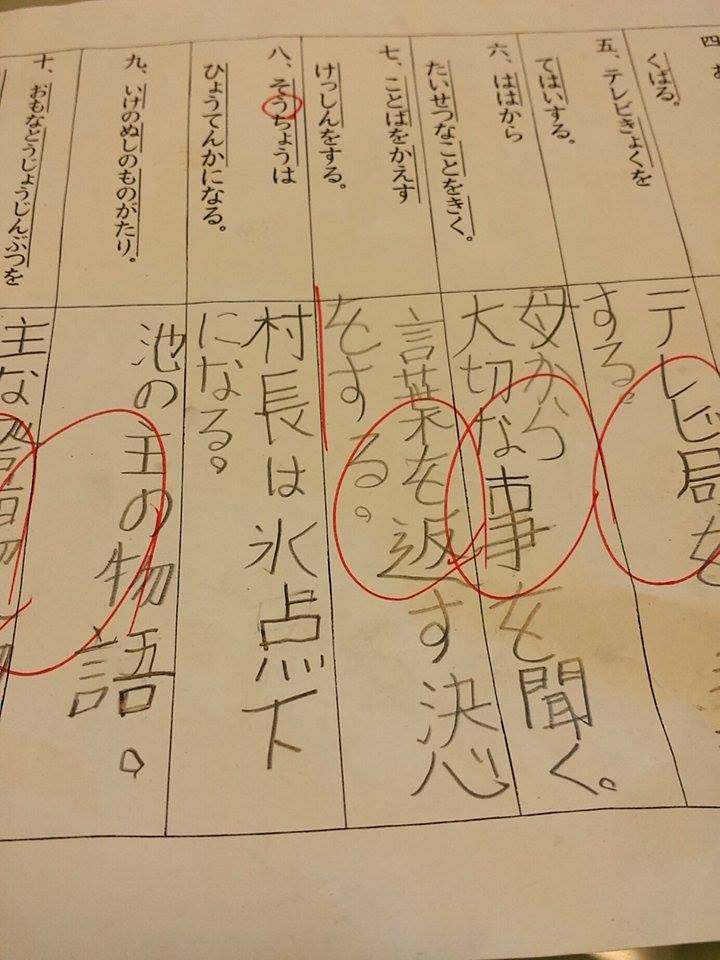 四
くばる。
五、テレビきょくを
てはいする。
六、ははから
たいせつなことをきく。
七、ことばをかえす
けっしんをする。
八、そうちょうは
ひょうてんかになる。
九、いけのぬしのものがたり。
十、おもなとうじょうじんぶつを
テレビ局を
する。
母から
大切な事を聞く。
言葉を返す決心
をする。
村長は氷点下
になる。
池の主の物語。
主な